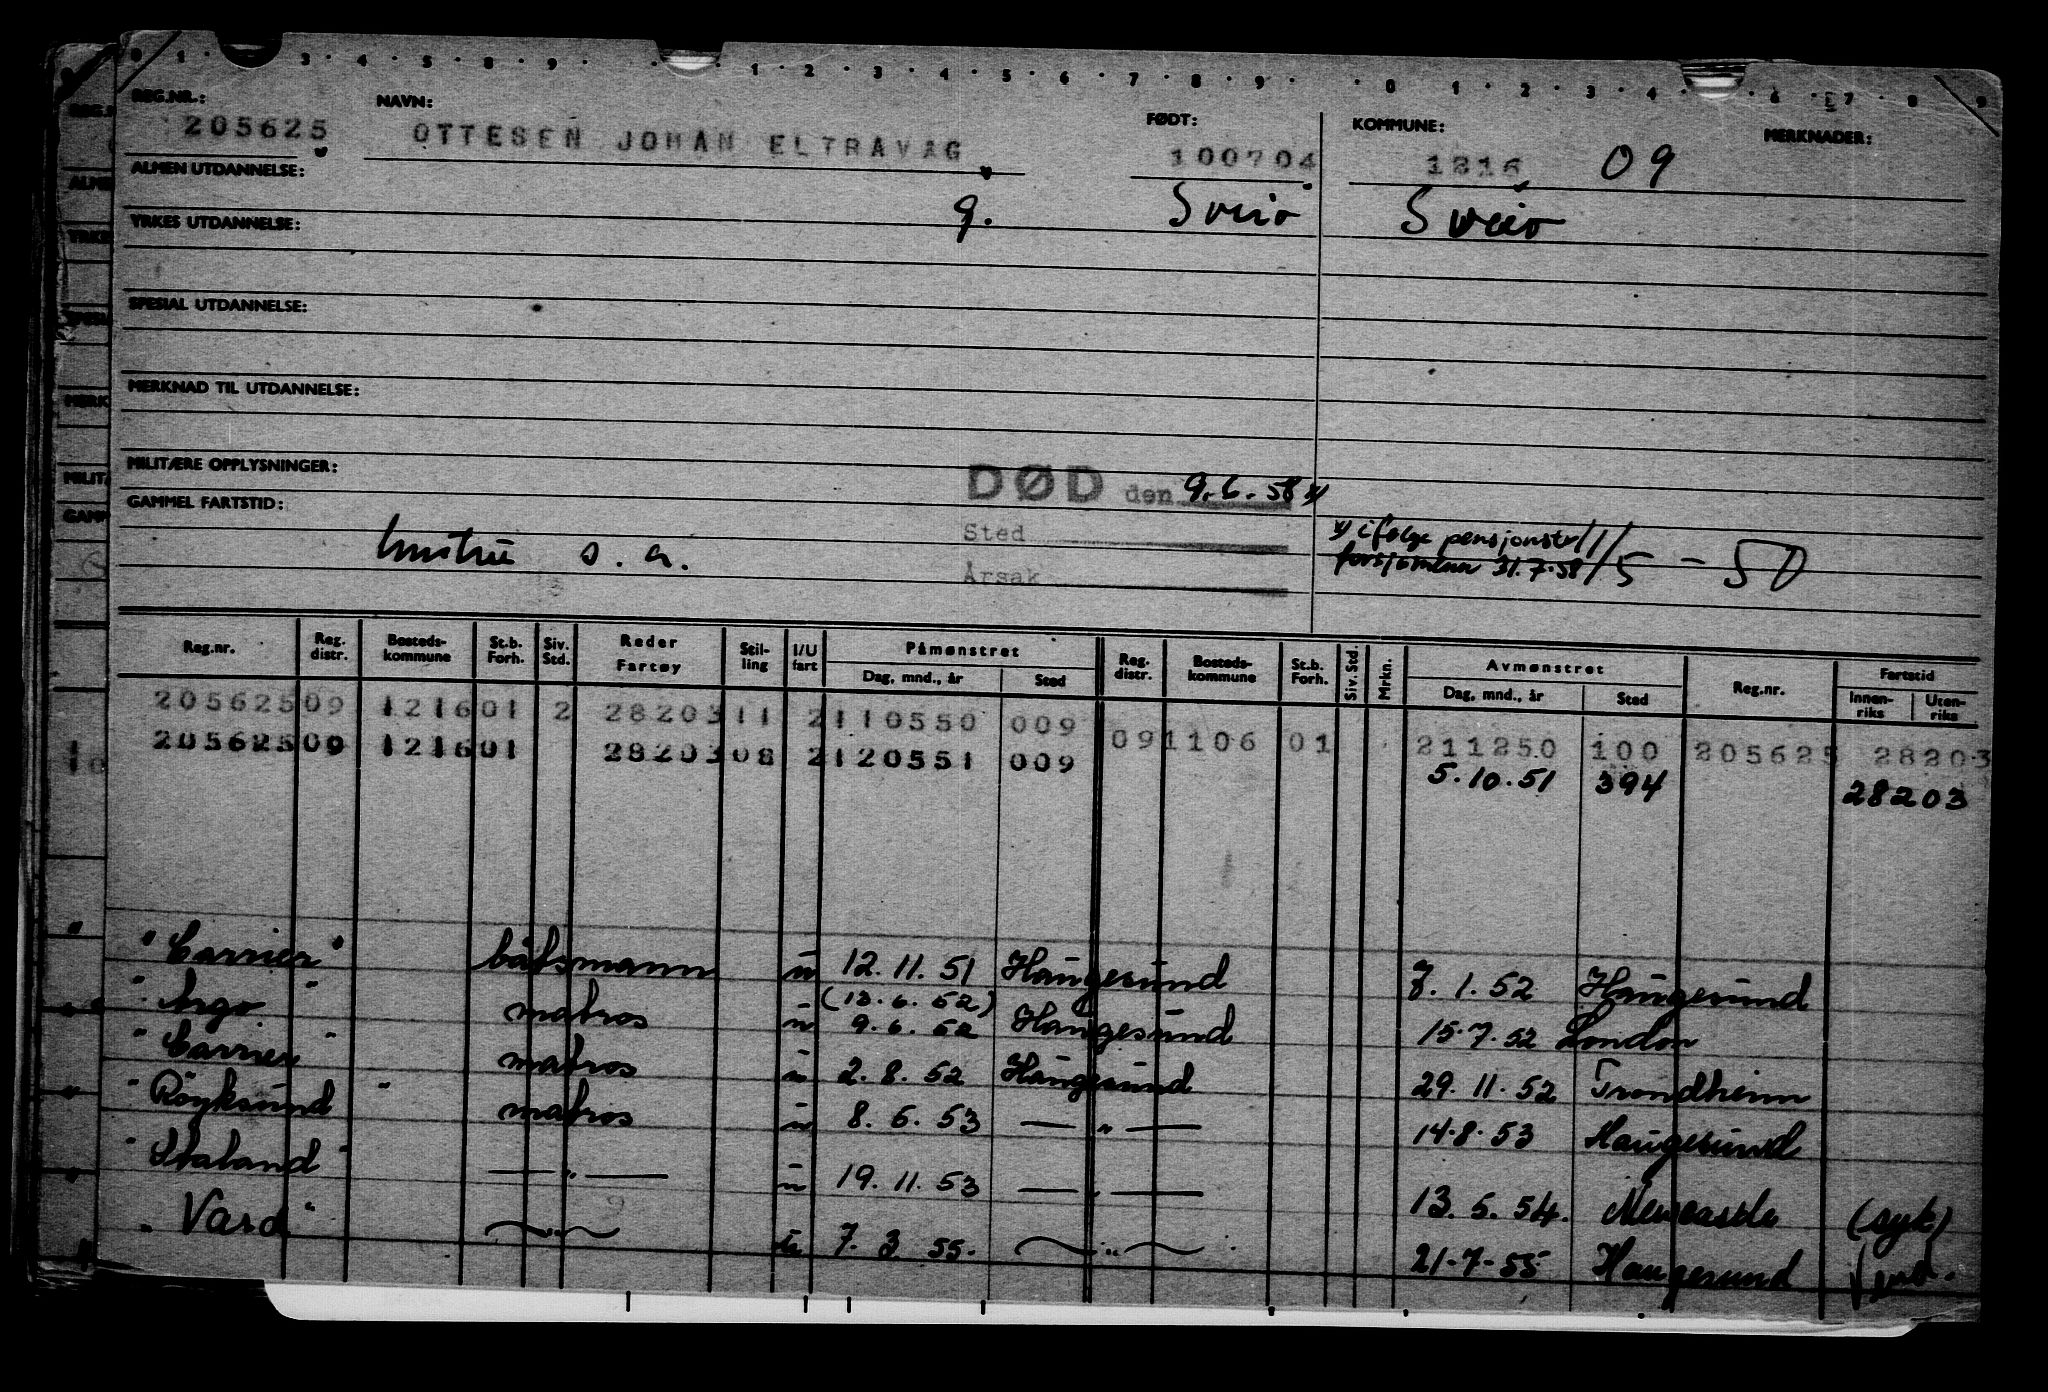 0 1 · 3 · 4 · 5 · 8 · 9 · · 1 · 2 · 3 · 4 · 5 · 6 · 7 · 8 · 9 · · 0 1 · 2 · 3 · 4 · 6 · 7 · 8 9
REG.NR.: NAVN: FØDT: KOMMUNE: MERKNADER:
205625 OTTESEN JOHAN ELTRAVAG 100704 1216 09
ALMEN UTDANNELSE:
g. Sveio Sveio
YRKES UTDANNELSE:
SPESIAL UTDANNELSE:
MERKNAD TIL UTDANNELSE:
MILITÆRE OPPLYSNINGER:
DØD den 9.6.58 x)
GAMMEL FARTSTID:
Sted
x) ifølge pensjonstr 11/5 - 50
hustru s. a.
forsjømenn 31.7.58
Årsak
Reg.nr. Reg. distr. Bosteds-kommune St.b. Forh. Siv. Std. Reder Fartøy Stil-ling I/U fart Påmønstret Dag, mnd., år Sted Reg. distr. Bosteds-kommune St.b. Forh. Siv. Std. Mrkn. Avmønstret Dag, mnd., år Sted Reg.nr. Fartstid Innen-riks Uten-riks
205625 09 1216 01 2 28203 11 2 110550 009 09 1106 01 211250 100 205625 28203
205625 09 1216 01 28203 08 2 120551 009 5.10.51 394 28203
"Carrier" båtsmann u 12.11.51 Haugesund 7.1.52 Haugesund
(13.6.52)
"Argo" matros u 9.6.52 Haugesund 15.7.52 London
"Carrier" matros u 2.8.52 Haugesund 29.11.52 Trondheim
"Röyksund" matros u 8.6.53 — " — 14.8.53 Haugesund
"Staland" — " — u 19.11.53 — " — 13.5.54. Newcastle (syk)
"Vard" — " — u 7.3.55. — " — 21.7.55 Haugesund